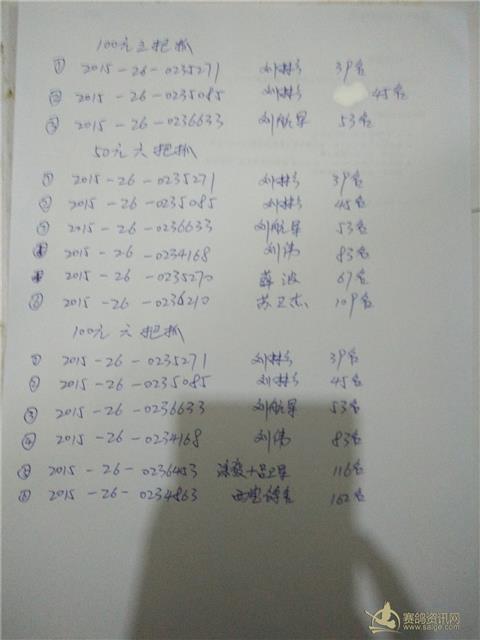 100元三把抓
① 2015-26-0235271 刘林 39名
② 2015-26-0235085 刘林 45名
③ 2015-26-0236633 刘航星 53名
50元六把抓
① 2015-26-0235271 刘林 39名
② 2015-26-0235085 刘林 45名
③ 2015-26-0236633 刘航星 53名
④ 2015-26-0234168 刘伟 83名
2015-26-0235270 薛波 67名
⑥ 2015-26-0236210 苏卫杰 109名
100元六把抓
① 2015-26-0235271 刘林 39名
② 2015-26-0235085 刘林 45名
③ 2015-26-0236633 刘航星 53名
④ 2015-26-0234168 刘伟 83名
⑤ 2015-26-0236453 116名
⑥ 2015-26-0234863 162名
赛鸽资讯网
www.saige.com